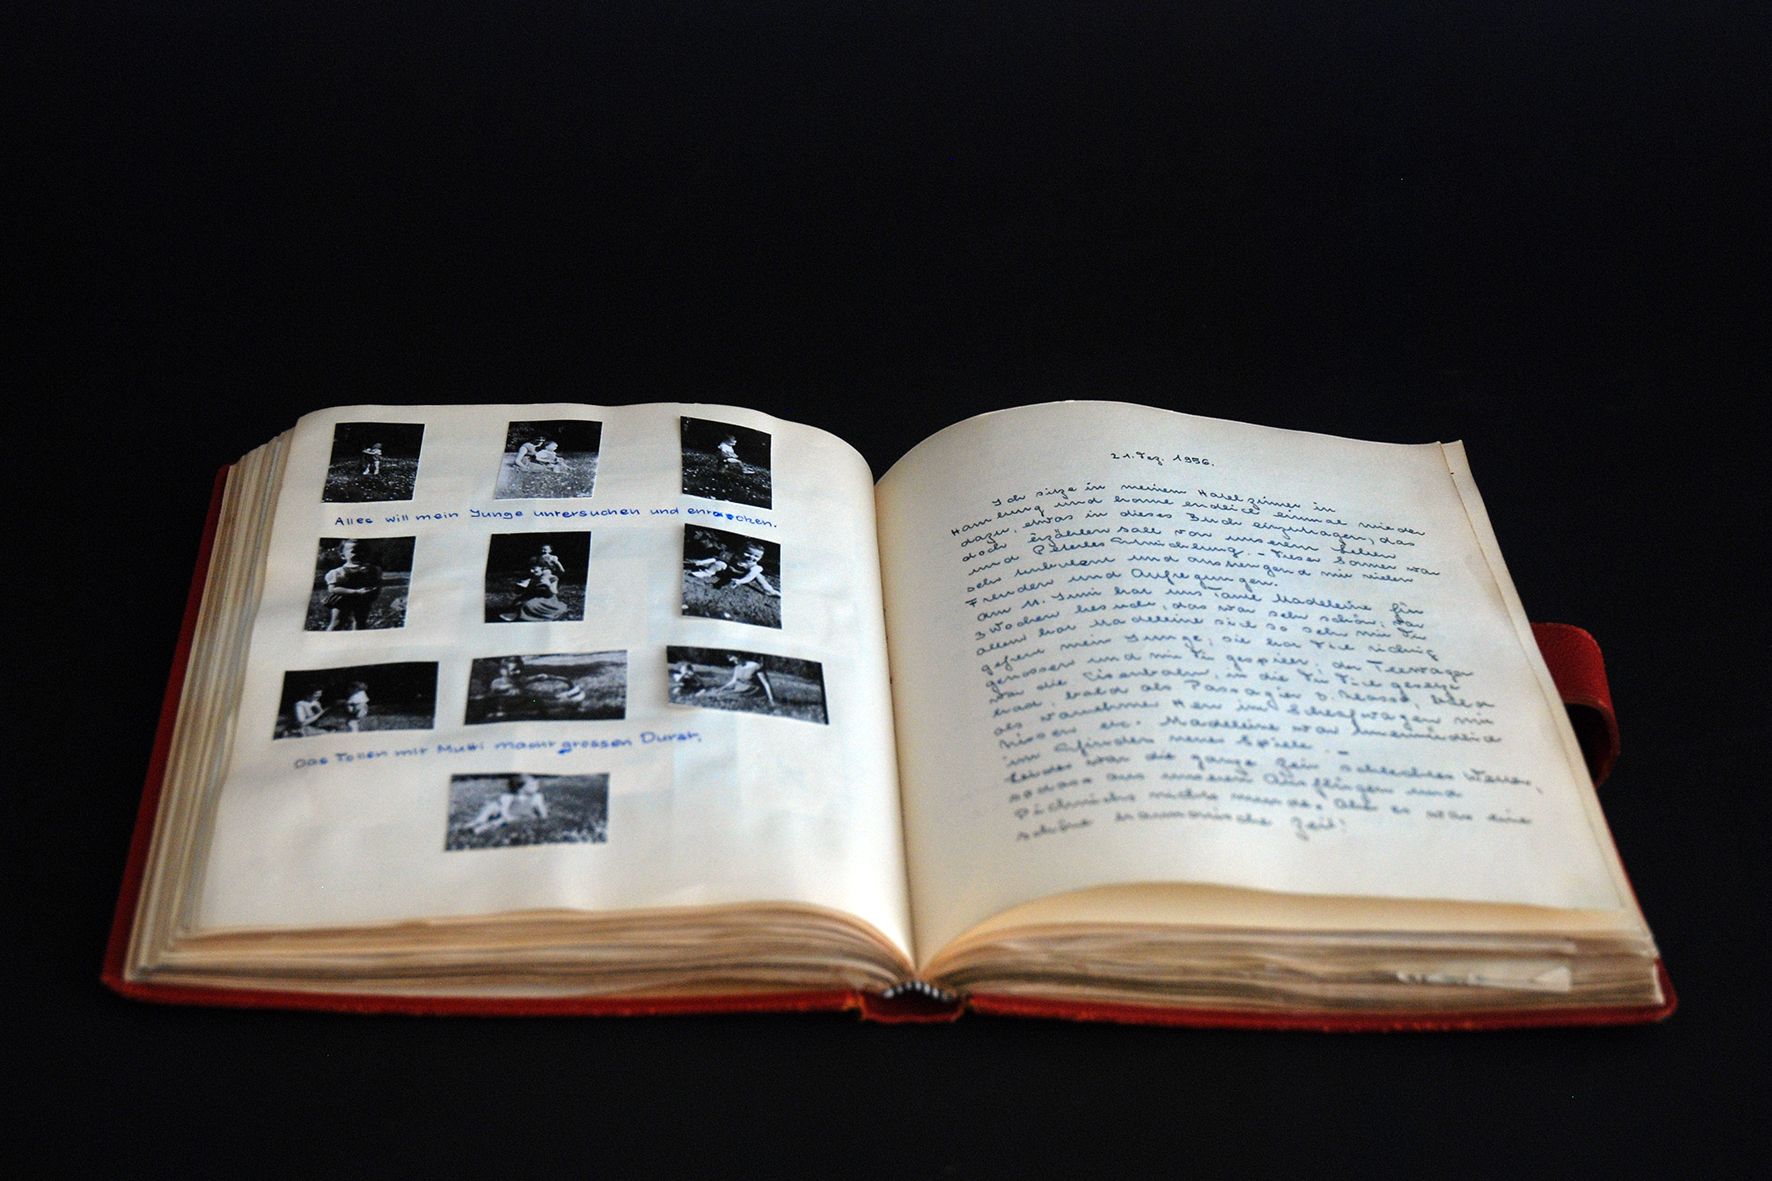 Alles will mein Junge untersuchen und entdecken.
Das Tollen mit Mutti macht grossen Durst.
21. Dez. 1956.
Ich sitze in meinem Hotelzimmer in
Hamburg und komme endlich einmal wieder
dazu, etwas in dieses Buch einzutragen, das
doch erzählen soll von unserem Leben
und Peterles Entwicklung. - Dieser Sommer war
sehr turbulent und anstrengend mit vielen
Freuden und Aufregungen.
Am 11. Juni hat uns Tante Madeleine für
3 Wochen besucht, das war sehr schön; vor
allem hat Madeleine sich so sehr mit Dir
gefreut mein Junge; sie hat Dich richtig
genossen und mit Dir gespielt; der Teewagen
war die Eisenbahn, in die Du Dich gesetzt
hast, bald als Passagier 3. Klasse, bald
als vornehmer Herr im Schlafwagen mit
Kissen etc. Madeleine war unermüdlich
im Erfinden neuer Spiele. -
Leider war die ganze Zeit schlechtes Wetter,
sodass aus unseren Ausflügen und
Picknicks nichts wurde. Aber es war eine
schöne harmonische Zeit!